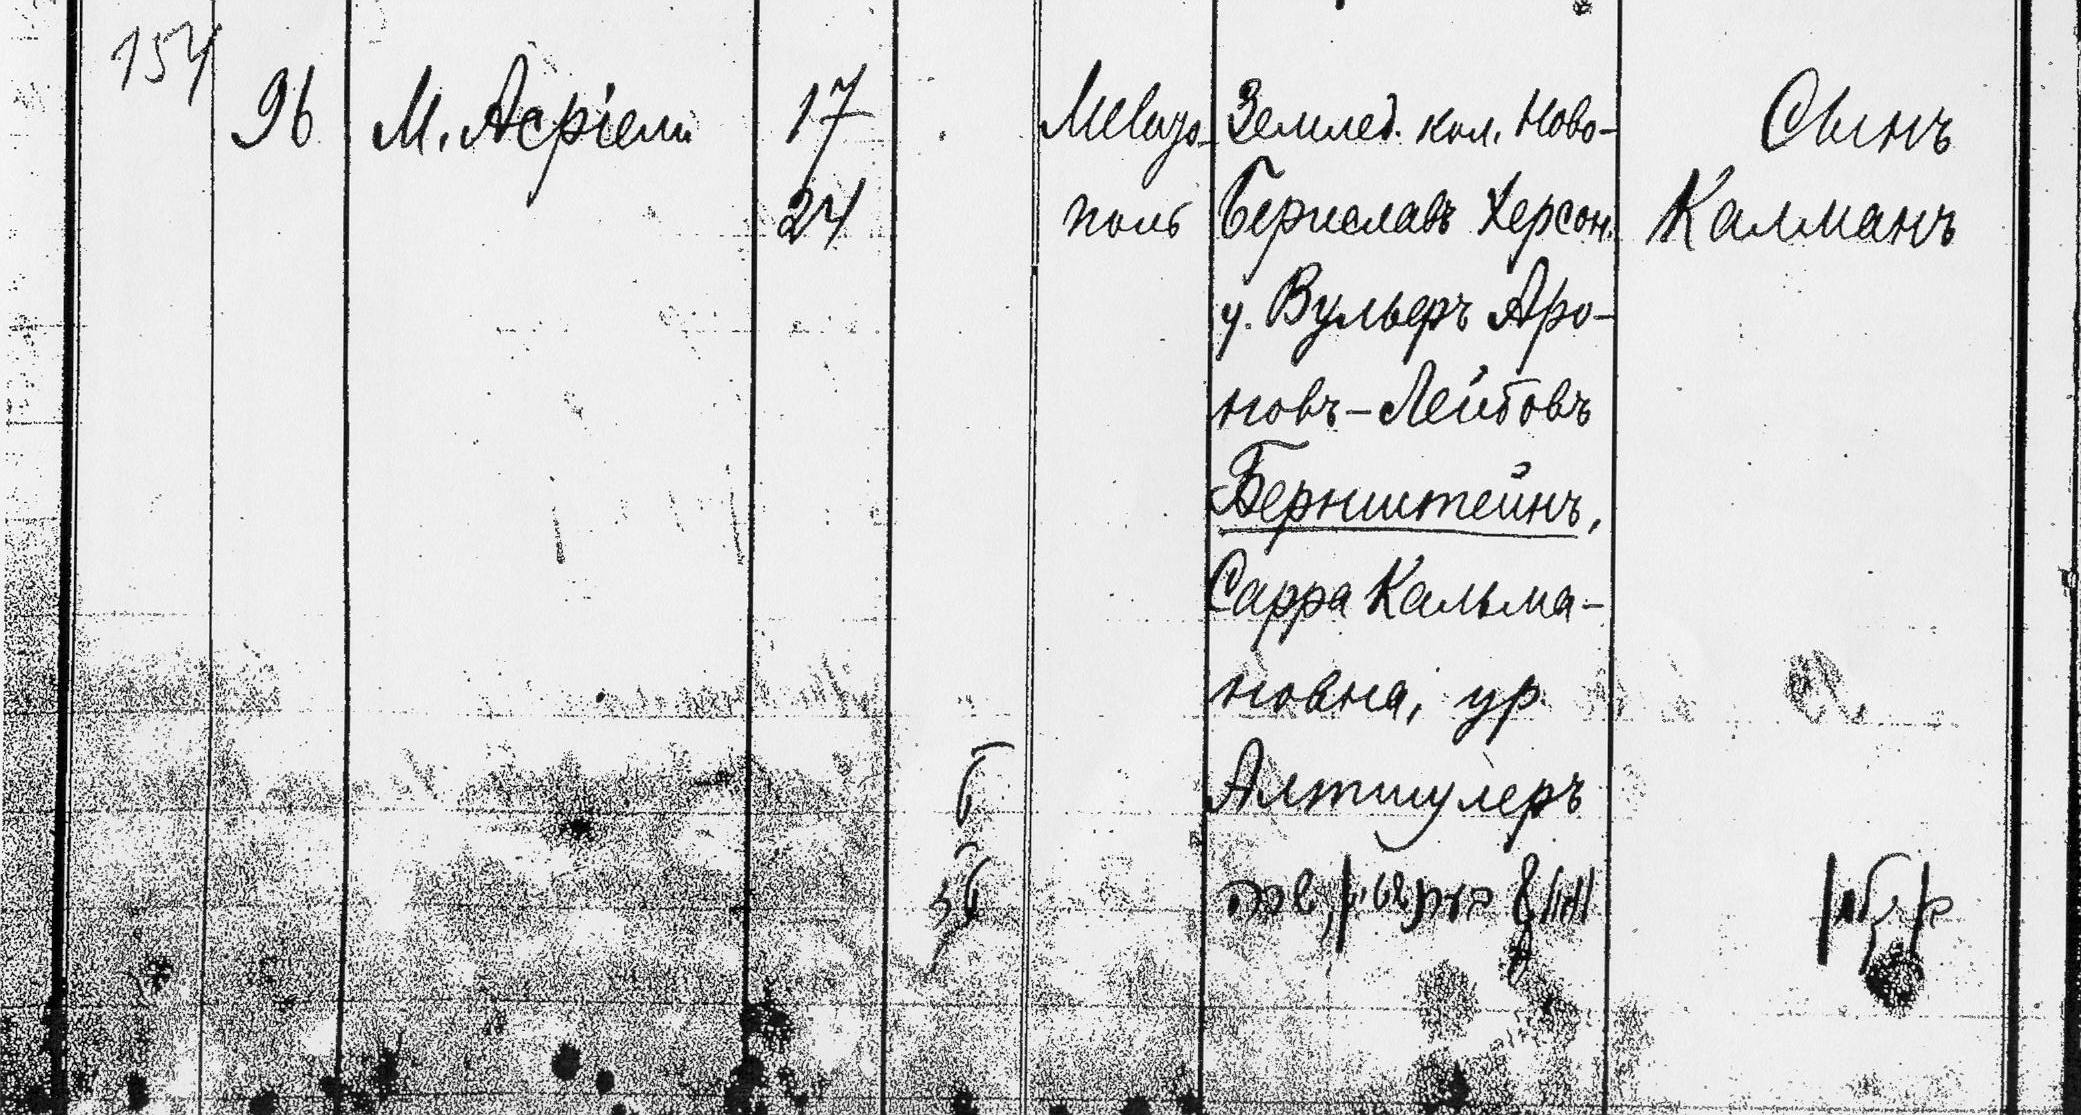 154
96
М. Асріели
17
24
Мелито-
поль
Землед. кол. Ново-
Бериславъ Херсон.
у. Вульфъ Аро-
новъ-Лейбовъ
Бернштейнъ,
Сарра Кальма-
новна, ур.
Алтшулеръ
ברנשטיין, שרה
Сынъ
Калманъ
קלמן